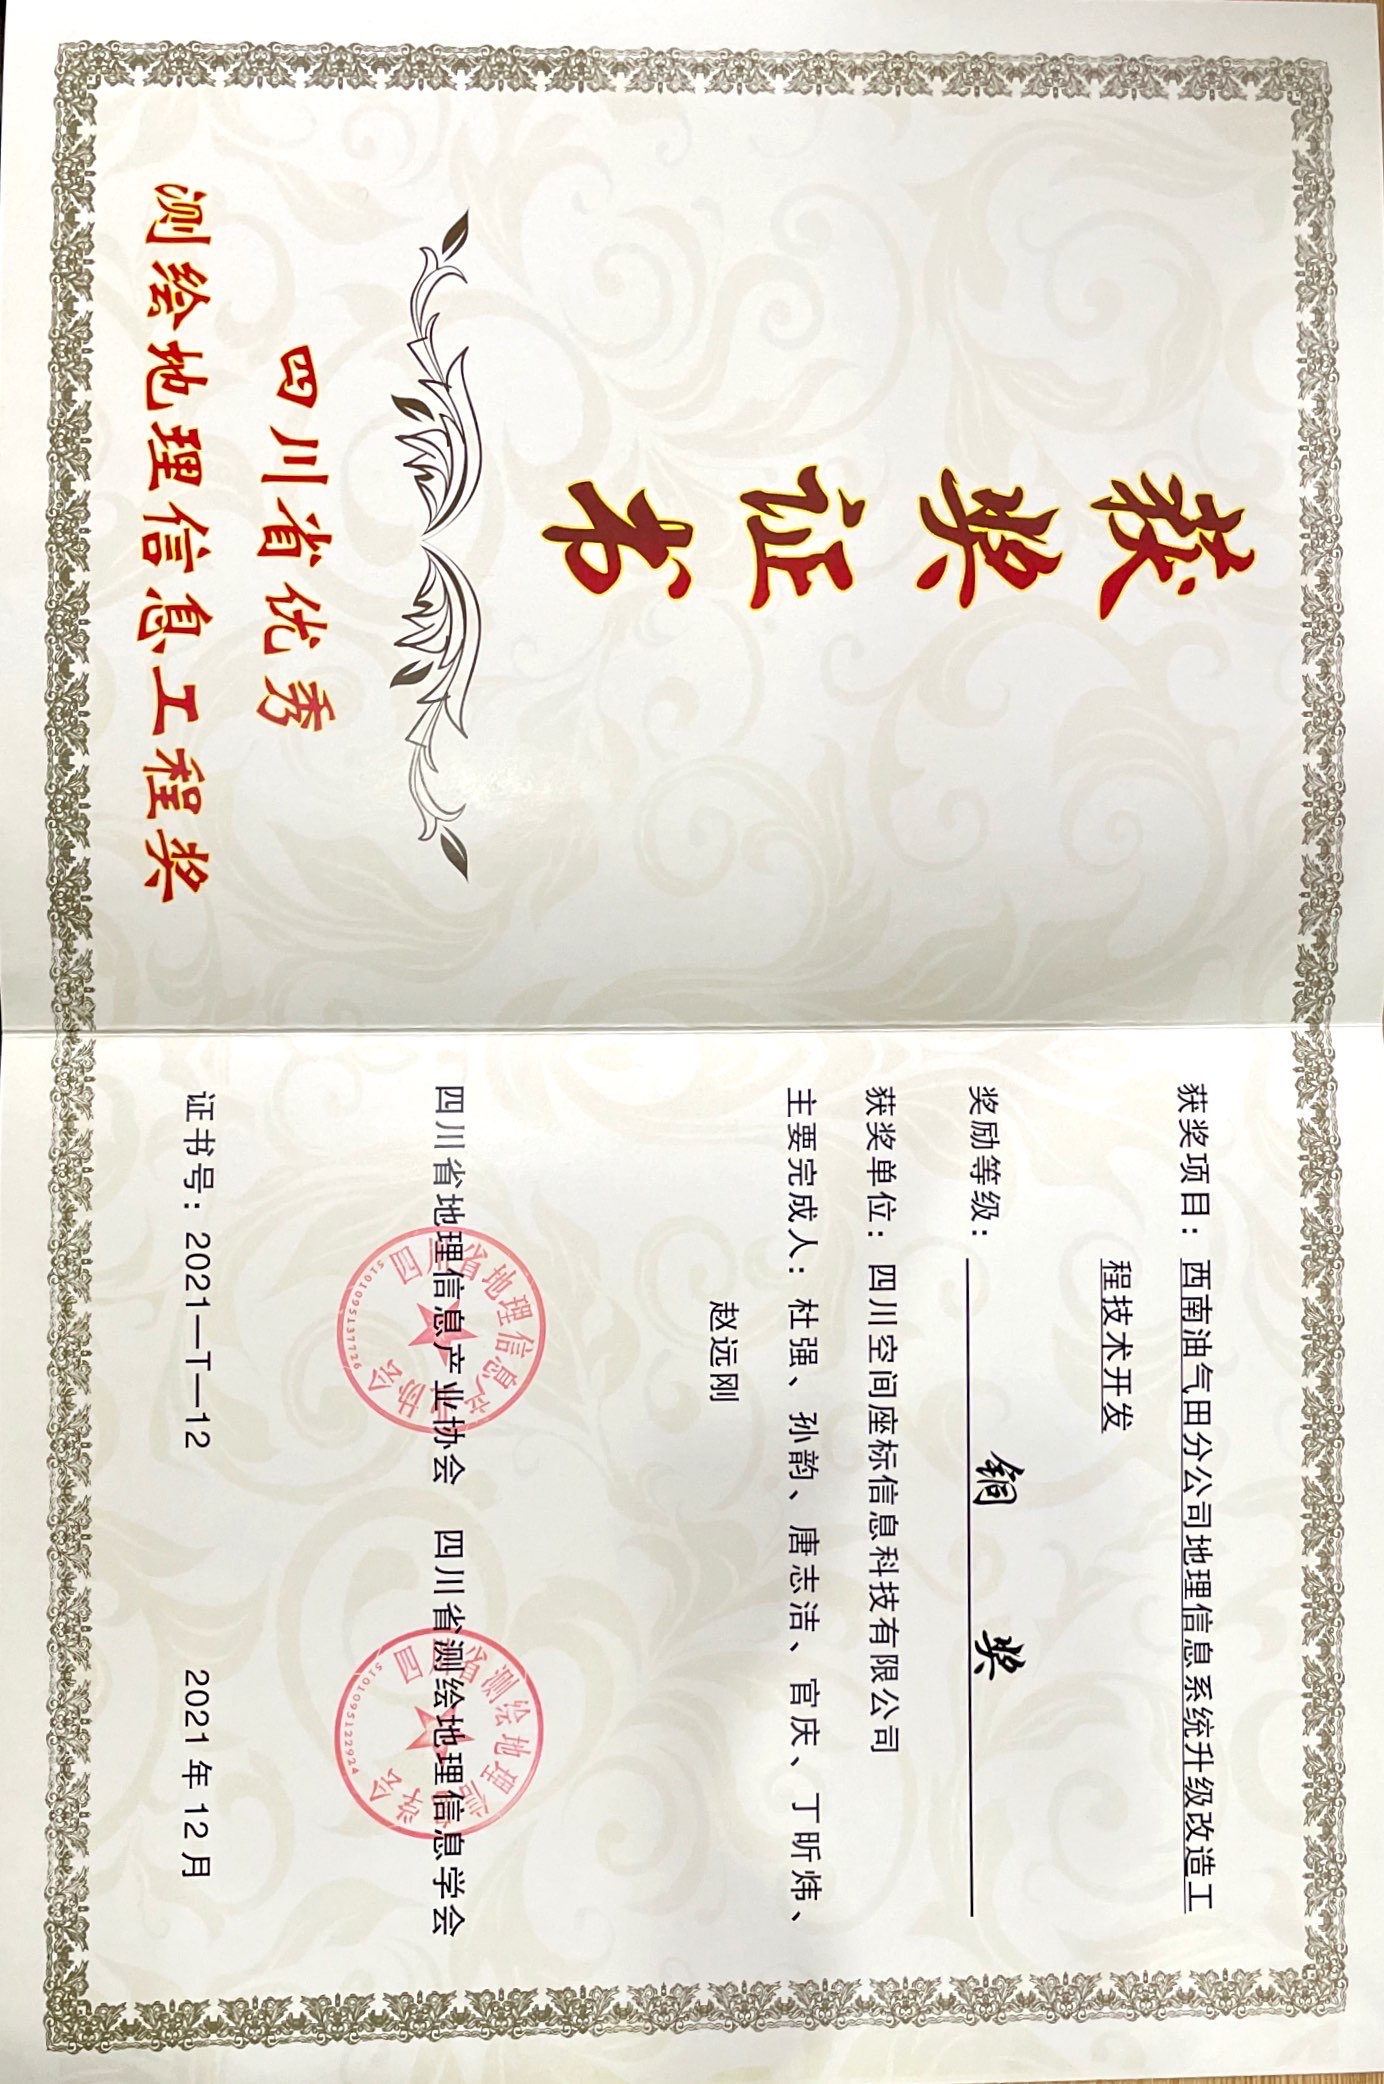 获奖证书
四川省优秀
测绘地理信息工程奖
获奖项目：西南油气田分公司地理信息系统升级改造工
程技术开发
奖励等级：铜奖
获奖单位：四川空间座标信息科技有限公司
主要完成人：杜强、孙韵、唐志洁、官庆、丁昕炜、
赵远刚
四川省地理信息产业协会 四川省测绘地理信息学会
四川省地理信息产业协会
5101095137726
四川省测绘地理信息学会
5101095122924
证书号：2021—T—12 2021年12月